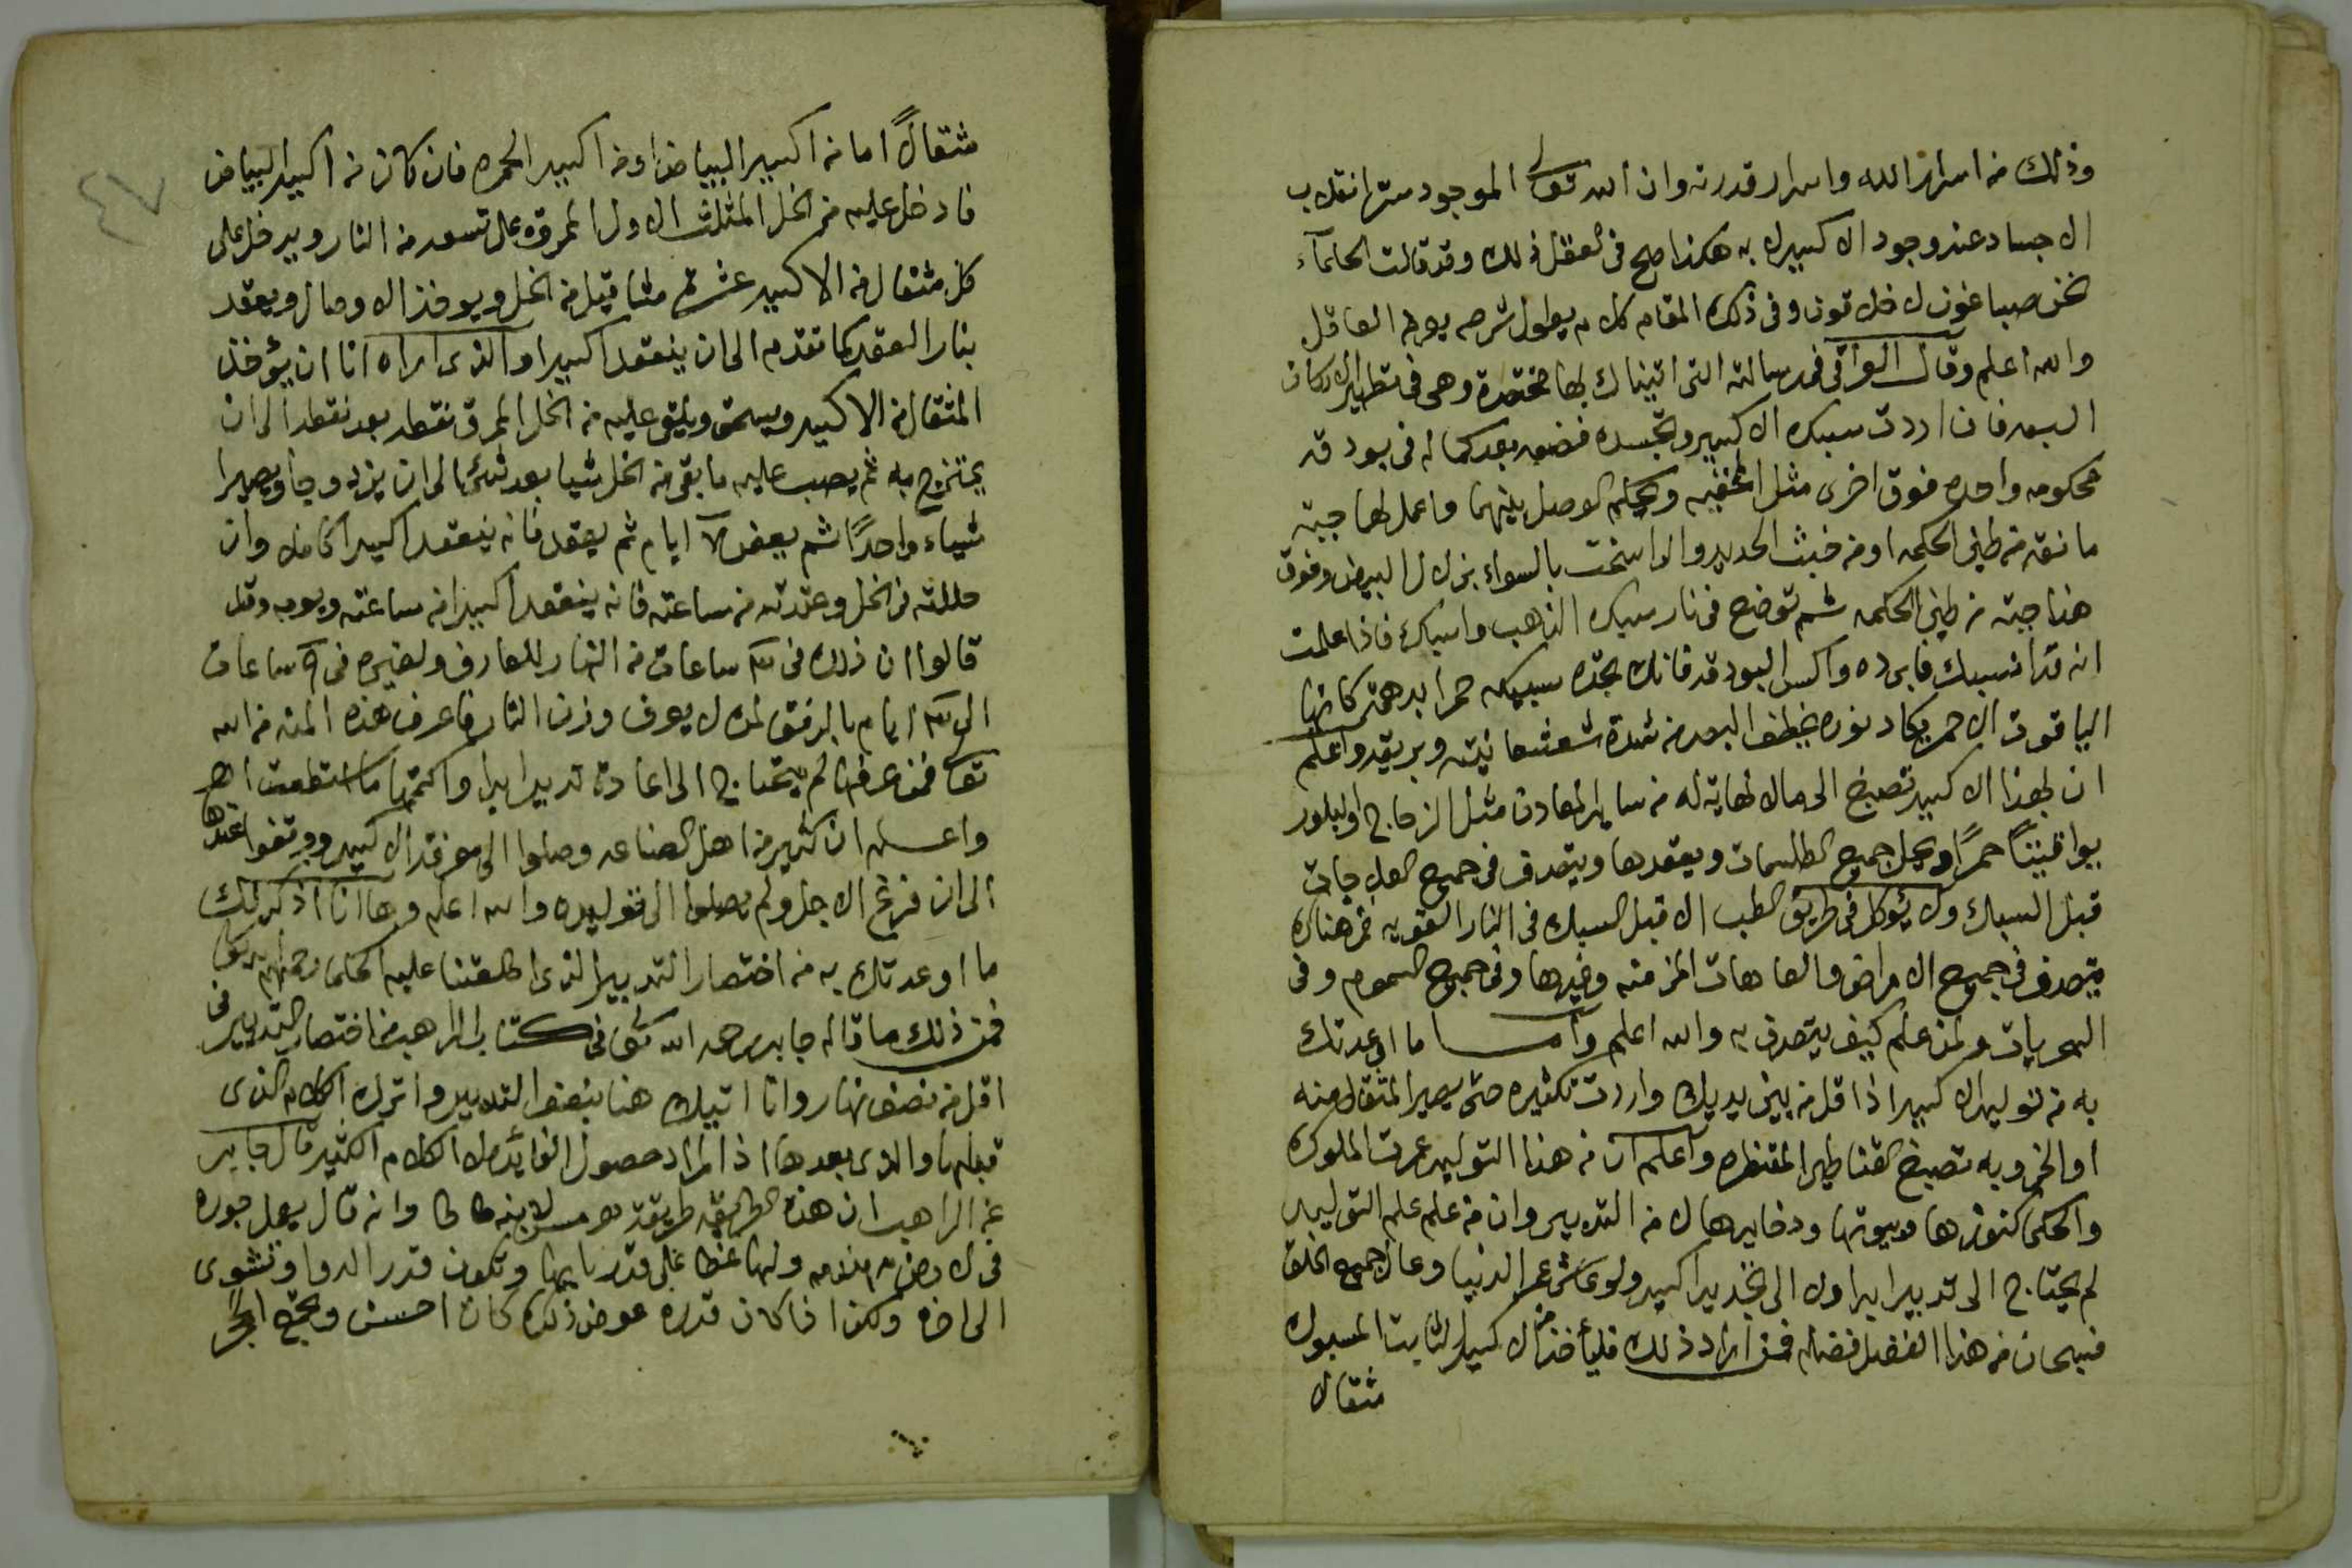 وذلك من اسرار الله واسرار قدرته وان الله تعالى الموجود سترا نقلاب
الاجساد عند وجود الاكسير له به هكذا صح فى العقل ذلك وقد قالت الحكماء
نحن صباغون لا خلاقون وفى ذلك المقام كلام يطول شرحه يعرفه العاقل
والله اعلم وقال الواقى فى رسالته التى اتيناك بها مختصرة وهى فى تطهير الاركان
السبعه فان اردت سبك الاكسير وتجسده فضعه بعد كماله فى بودقه
محكومه واحده فوق اخرى مثل الخفيه وتحكم الوصل بينهما واعمل لها جبته
مانعه من طين الحكمه او من خبث الحديد والراسخت بالسواء بزلال البيض وفوق
هذا جبته من طين الحكمه ثم توضع فى نار سبك الذهب واسبك فاذا علمت
انه قد انسبك فابرده واكسر البودقه فانك تجده سبيكه حمرا بدهنته كانها
الياقوت الاحمر يكاد نوره يخطف البصر من شدة شعشعانيته وبريقه واعلم
ان لهذا الاكسير تصبغ الى مالا نهاية له من ساير المعادن مثل الزجاج والبلور
يواقيتًا حمرًا ويحل جميع الطلسمات ويعقدها ويتصرف فى جميع العلاجات
قبل السبك ولا يؤكل فى طريق الطب الا قبل السبك فى النار القويه فمن هناك
يتصرف فى جميع الامراض والعاهات المزمنه وغيرها وفى جميع السموم وفى
السحريات ولمن علم كيف يتصرف به والله اعلم واما ما اوعدتك
به من توليد الاكسير اذا قل من بين يديك واردت تكثيره حتى يصير المثقال منه
اوالخروبه تصبغ القناطير المقنطره واعلم ان من هذا التوليد عمرت الملوك
والحكما كنوزها وبيوتها ودخايرها لا من التدبير وان من علم علم التوليد
لم يحتاج الى تدبير ابدا ولا الى تجديد اكسير ولو عاش عمر الدنيا وعال جميع الخلق
فسبحان من هذا الفضل فضله فمن اراد ذلك فليأخذ من الاكسير الثابت المسبوك
مثقال
٤٧
مثقالاً اما من اكسير البياض او من اكسير الحمره فان كان من اكسير البياض
فادخل عليه من الخل المثلث الاول المروق على تسعه من النار ويدخل على
كل مثقال من الاكسير عشرة مثاقيل من الخل ويوخذ الاوصال ويعقد
بنار العقد كما تقدم الى ان ينعقد اكسيرا والذى اراه انا ان يؤخذ
المثقال من الاكسير ويسحق ويلقى عليه من الخل المروق نقطه بعد نقطه الى ان
يمتزج به ثم يصب عليه ما بقى من الخل شيا بعد شئ الى ان يزدوجا ويصيرا
شيأ واحدًا ثم يعفن ايام ثم يعقد فانه ينعقد اكسيرا كاملا وان
حللته فى الخل وعقدته من ساعته فانه ينعقد اكسيرا من ساعته ويومه وقد
قالوا ان ذلك فى ساعات من النهار للعارف ولغيره فى ساعات
الى ايام بالرفق لمن لا يعرف وزن النار فاعرف هذه المنه من الله
تعالى فمن عرفها لم يحتاج الى اعادة تدبير ابدا واكتمها ما استطعت اهـ
واعلم ان كثير من اهل الصناعه وصلوا الى معرفة الاكسير ووقفوا عندها
الى ان فرغ الاجل ولم يصلوا الى توليده والله اعلم وها انا اذكر لك
ما اوعدتك به من اختصار التدبير الذى اطلعتنا عليه الحكما رحمهم الله تعالى
فمن ذلك ما قاله جابر رحمه الله تعالى فى كتاب الراهب من اختصار التدبير فى
اقل من نصف نهار وانا اتيك هنا بنصف التدبير واترك الكلام الذى
قبلها والذى بعدها اذ المراد حصول الفايده لا الكلام الكثير قال جابر
عن الراهب ان هذه الطريقه طريقة هرمس لابنه طاطا وانه قال يعمل جوره
فى الارض ولها غطا على قدر بابها وتكون قدر الدوا وتشوى
الى اخره ولكن اذا كان قدره عوض ذلك كان احسن ويجمع الحجر